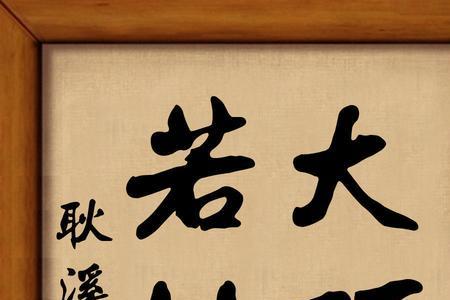 大
若
耿溪